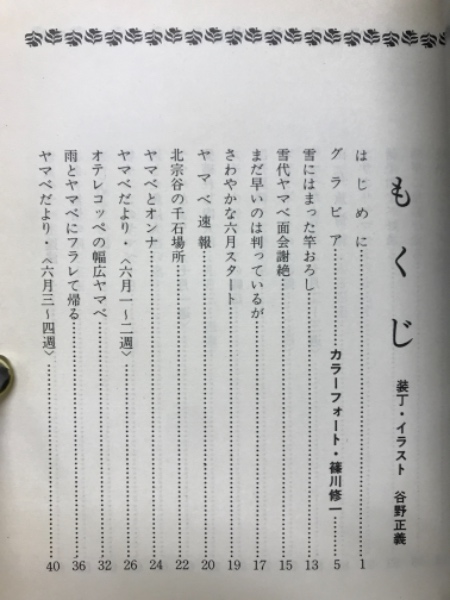 もくじ
装丁・イラスト 谷野正義
はじめに……1
グラビア……カラーフォート・篠川修一……5
雪にはまった竿おろし……13
雪代ヤマベ面会謝絶……15
まだ早いのは判っているが……17
さわやかな六月スタート……19
ヤマベ速報……20
北宗谷の千石場所……22
ヤマベとオンナ……24
ヤマベだより・〈六月一〜二週〉……26
オテレコッペの幅広ヤマベ……32
雨とヤマベにフラレて帰る……36
ヤマベだより・〈六月三〜四週〉……40